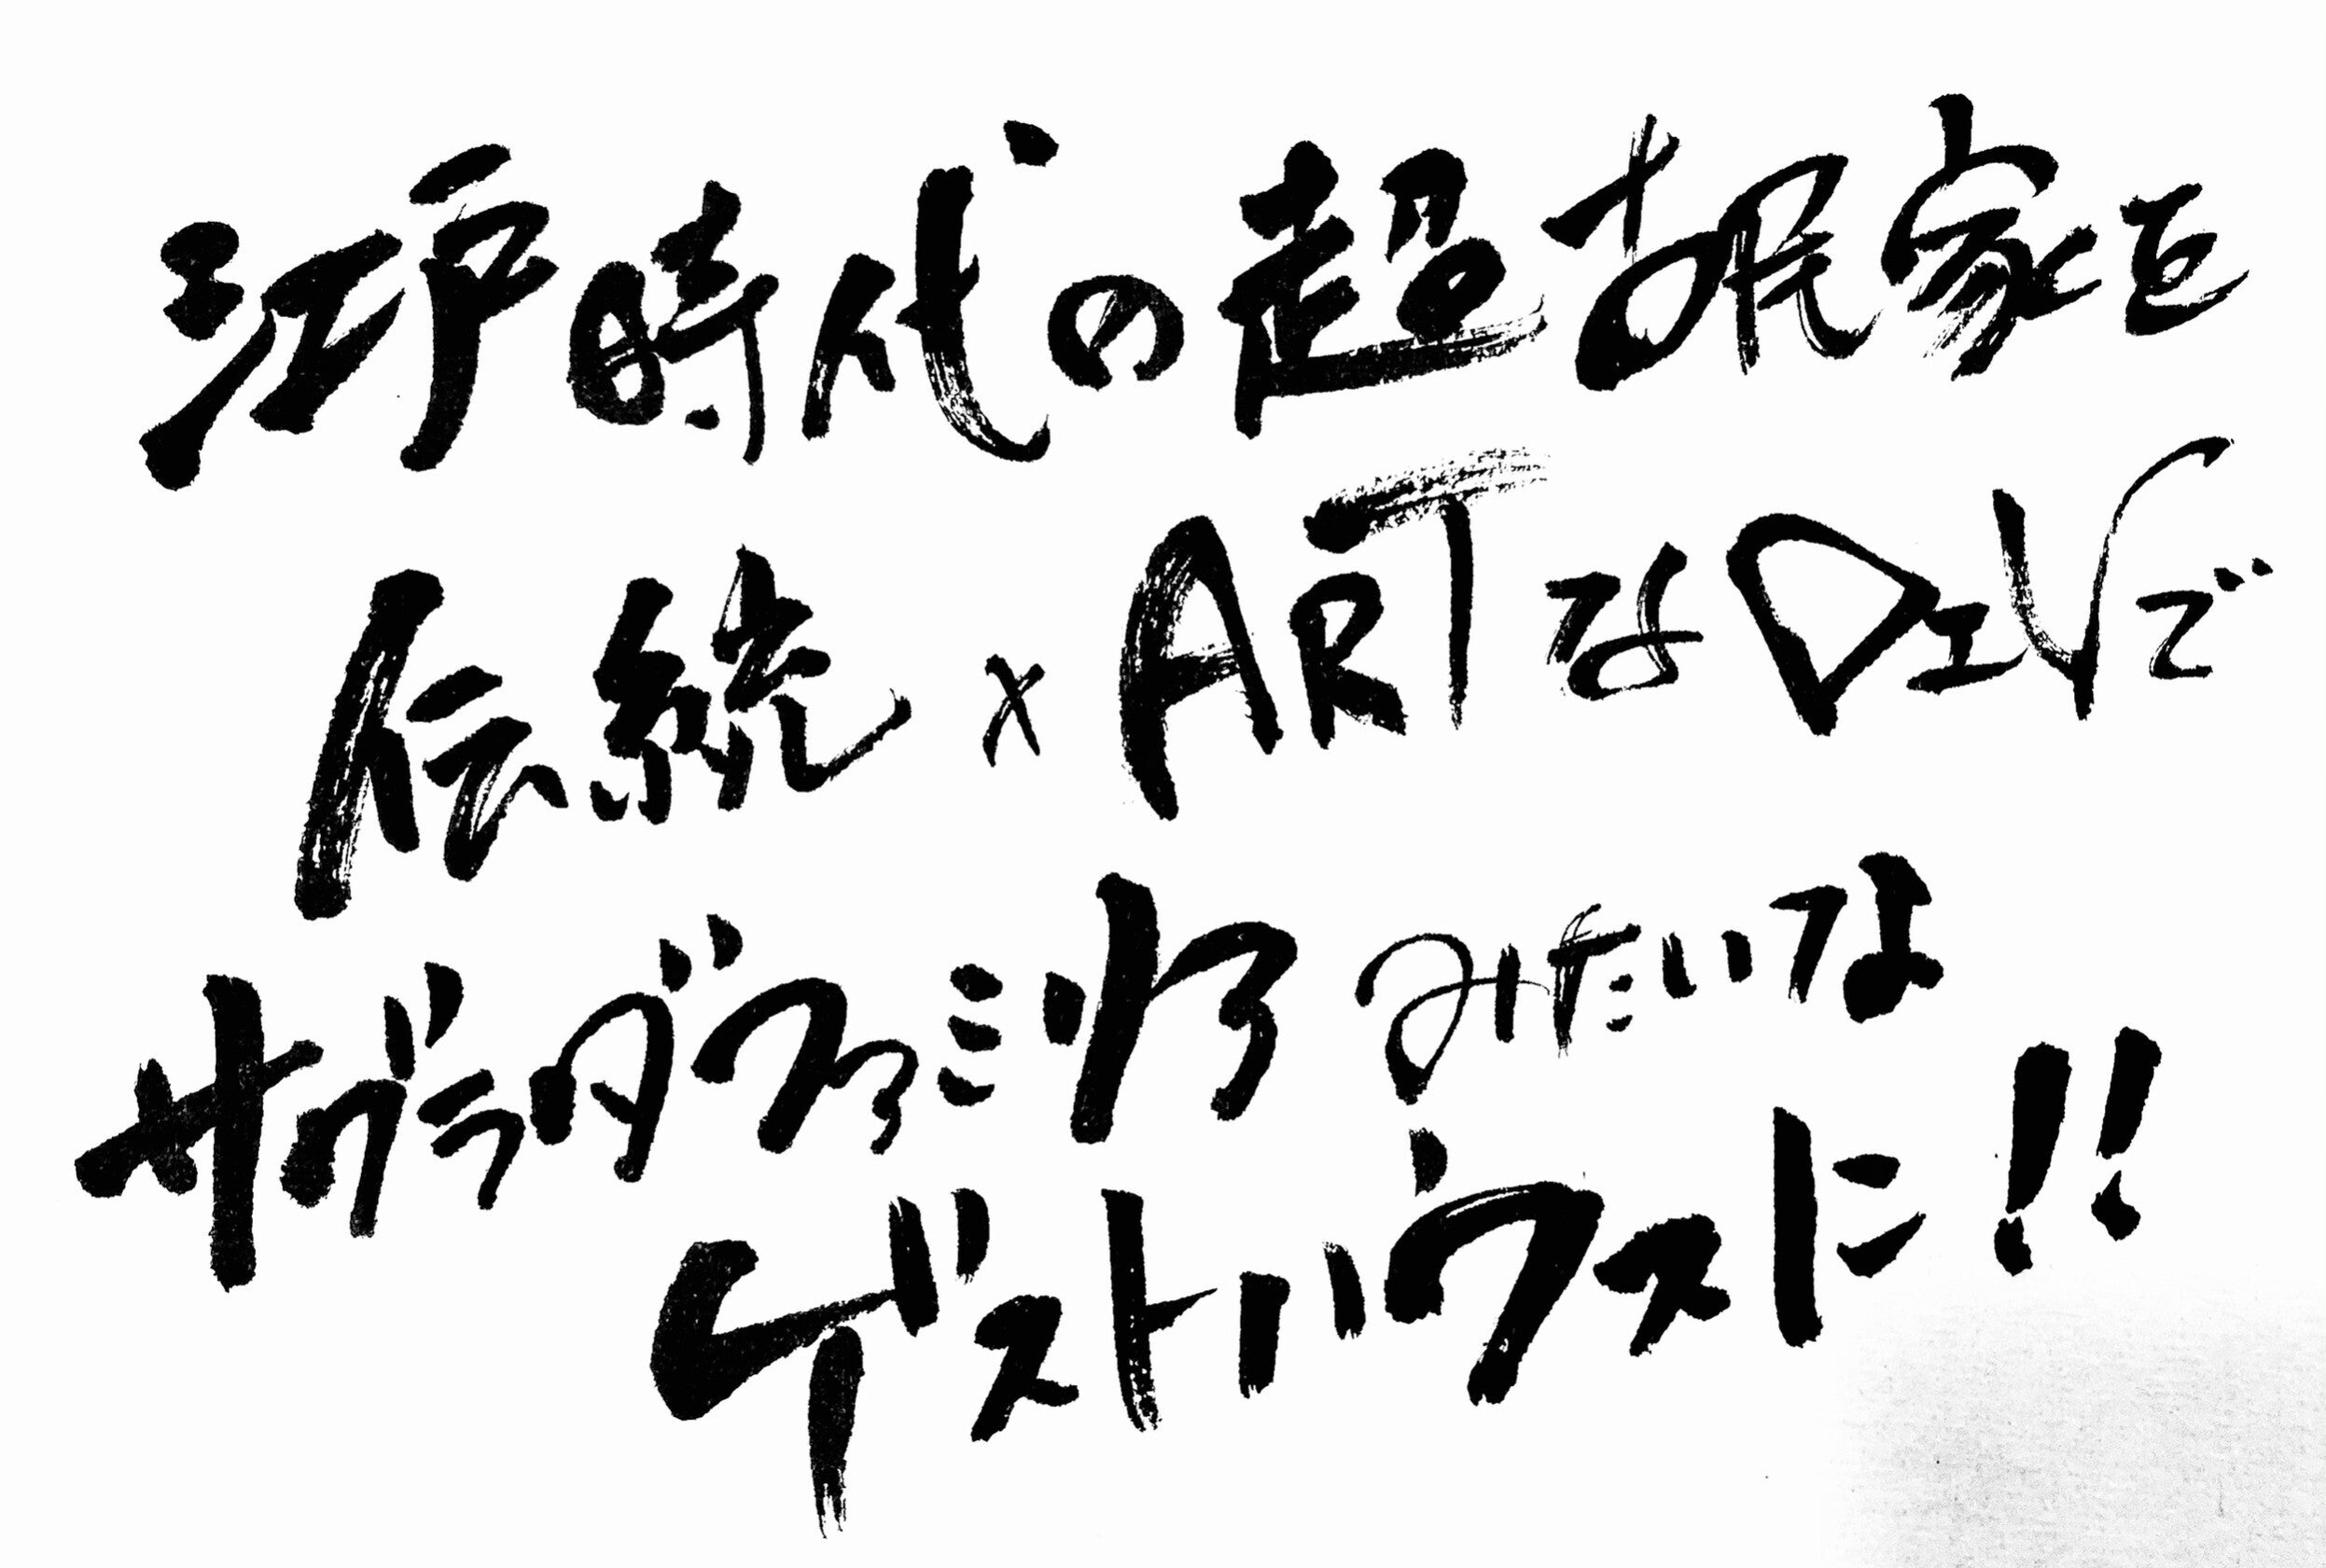 江戸時代の超古民家を
伝統×ARTなDIYで
サグラダファミリアみたいな
ゲストハウスに!!